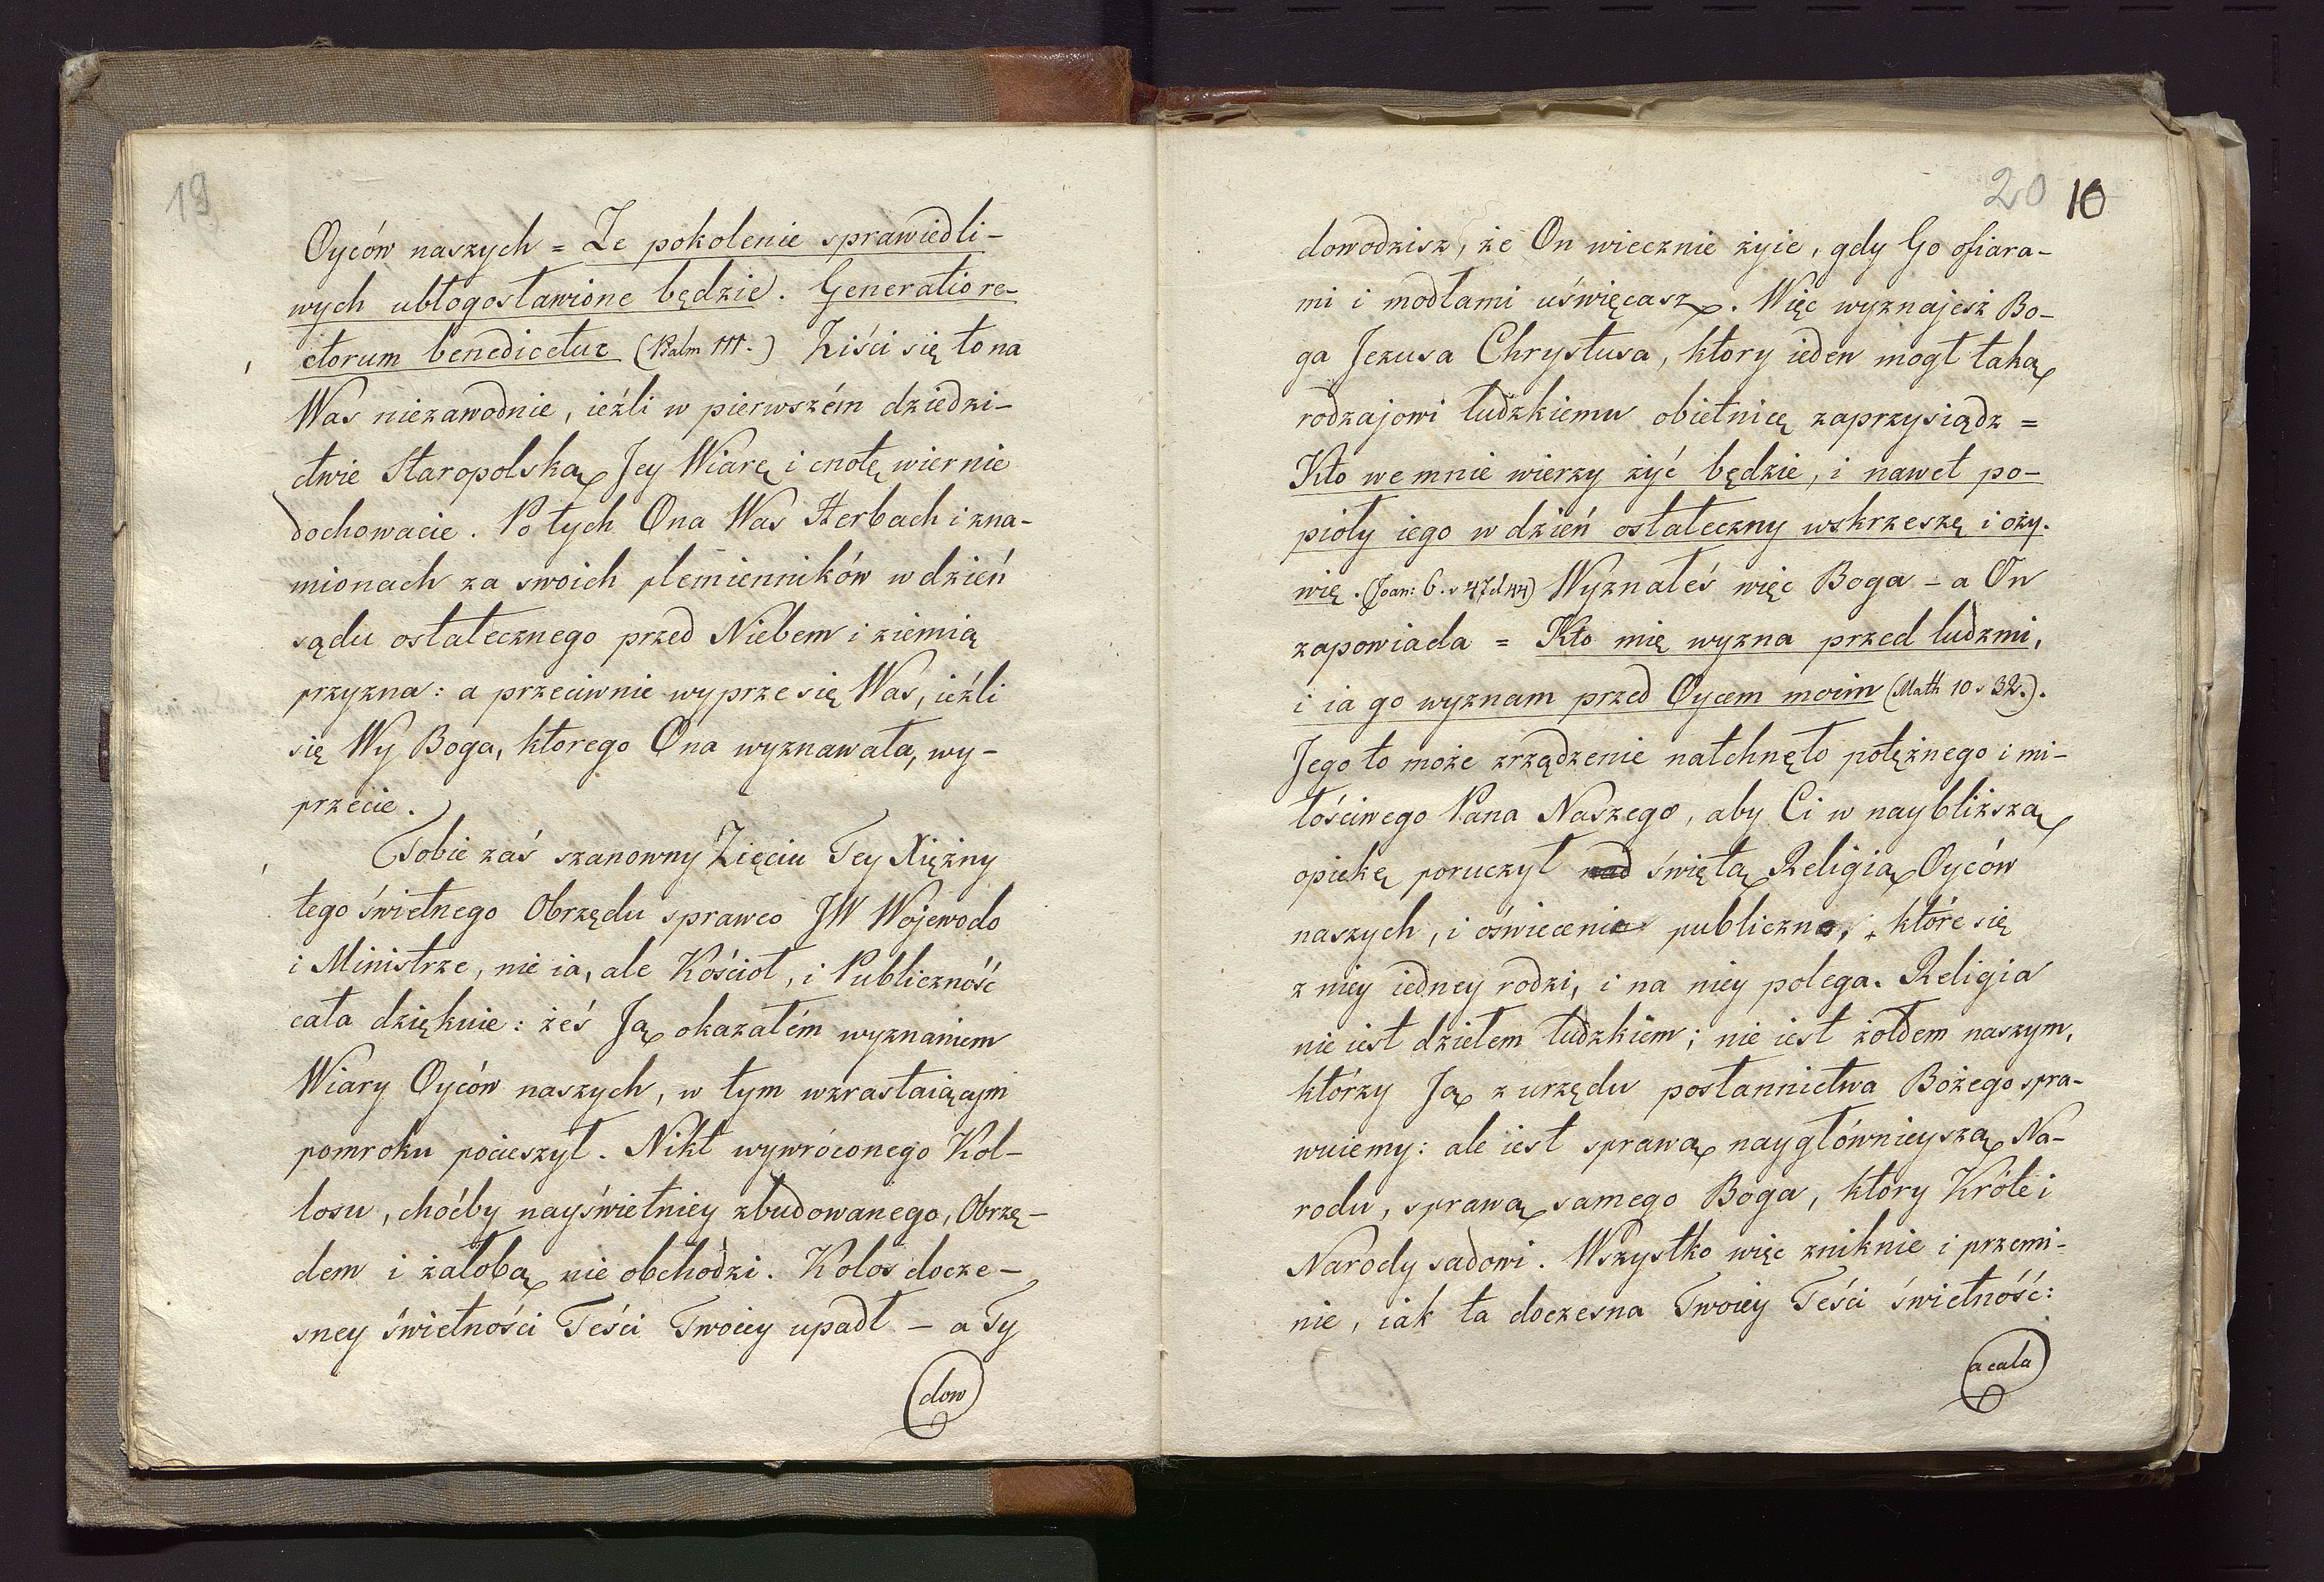 19
Oyców naszych = Że pokolenie sprawiedli-
wych ubłogosławione będzie. Generatio re-
ctorum benedicetur (Psalm 111.) Ziści się to na
Was niezawodnie, ieźli w pierwszém dziedzi-
ctwie Staropolską Jey Wiarę i cnotę wiernie
dochowacie. Po tych Ona Was Herbach i zna-
mionach za swoich plemienników w dzień
sądu ostatecznego przed Niebem i ziemią
przyzna: a przeciwnie wyprze się Was, ieźli
się Wy Boga, ktorego Ona wyznawała, wy-
przecie.
Tobie zaś szanowny Zięciu Tey Xiężny
tego świetnego Obrzędu sprawco JW Wojewodo
i Ministrze, nie ia, ale Kościoł, i Publiczność
cała dziękuie: żeś Ją okazałém wyznaniem
Wiary Oyców naszych, w tym wzrastaiącym
pomroku pocieszył. Nikt wywróconego Kol-
losu, choćby nayświetniey zbudowanego, Obrzę-
dem i żałobą nie obchodzi. Kolos docze-
sney świetności Teści Twoiey upadł - a Ty
dow
20 10
dowodzisz, że On wiecznie żyie, gdy Go ofiara-
mi i modłami uświęcasz. Więc wyznajesz Bo-
ga Jezusa Chrystusa, ktory ieden mogł taką
rodzajowi ludzkiemu obietnicę zaprzysiądz =
Kto we mnie wierzy żyć będzie, i nawet po-
pioły iego w dzień ostateczny wskrzeszę i oży-
wię. (Joan: 6. v 47 et 44) Wyznałeś więc Boga - a On
zapowiada = Kto mię wyzna przed ludzmi,
i ia go wyznam przed Oycem moim (Math 10 v 32.).
Jego to może zrządzenie natchnęło potężnego i mi-
łościwego Pana Naszego, aby Ci w naybliższą
opiekę poruczył nad świętą Religią Oyców
naszych, i oświecenie publiczne, które się
z niey iedney rodzi, i na niey polega. Religia
nie iest dziełem ludzkiem; nie iest żołdem naszym,
którzy Ją z urzędu posłannictwa Bożego spra-
wuiemy: ale iest sprawą naygłównieyszą Na-
rodu, sprawą samego Boga, ktory Króle i
Narody sadowi. Wszystko więc zniknie i przemi-
nie, iak ta doczesna Twoiey Teści świetność:
a cała